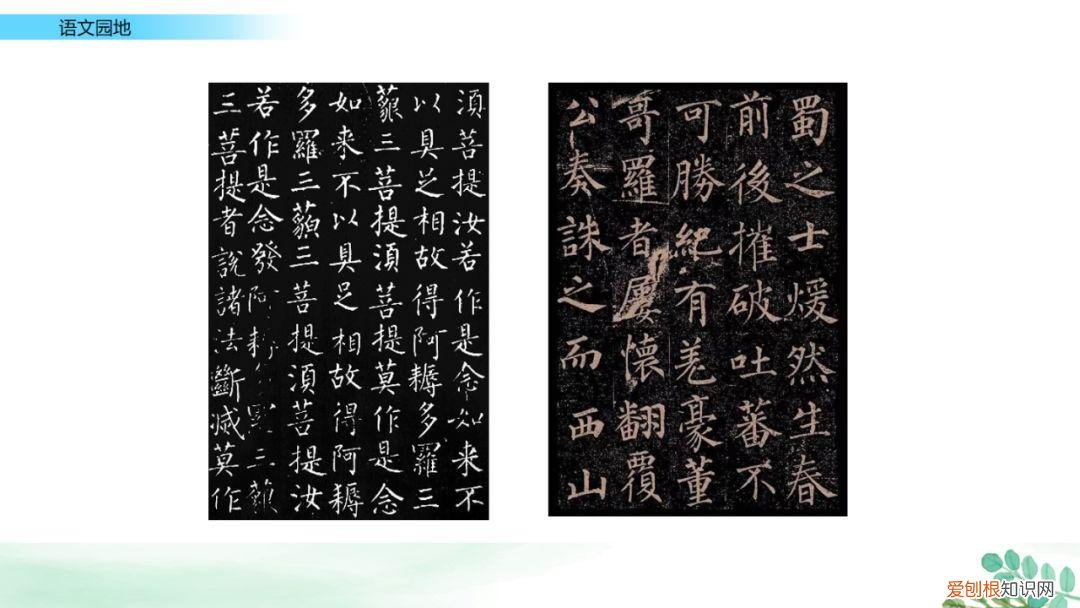 语文园地
湏菩提汝若作是念如来不
以具足相故得阿耨多羅三
藐三菩提湏菩提莫作是念
如来不以具足相故得阿耨
多羅三藐三菩提湏菩提汝
若作是念發阿耨三藐
三菩提者說諸法斷滅莫作
蜀之士煖然生春
前後摧破吐蕃不
可勝紀有羌豪董
哥羅者屢懷翻覆
公奏誅之而西山
爱刨根知识网